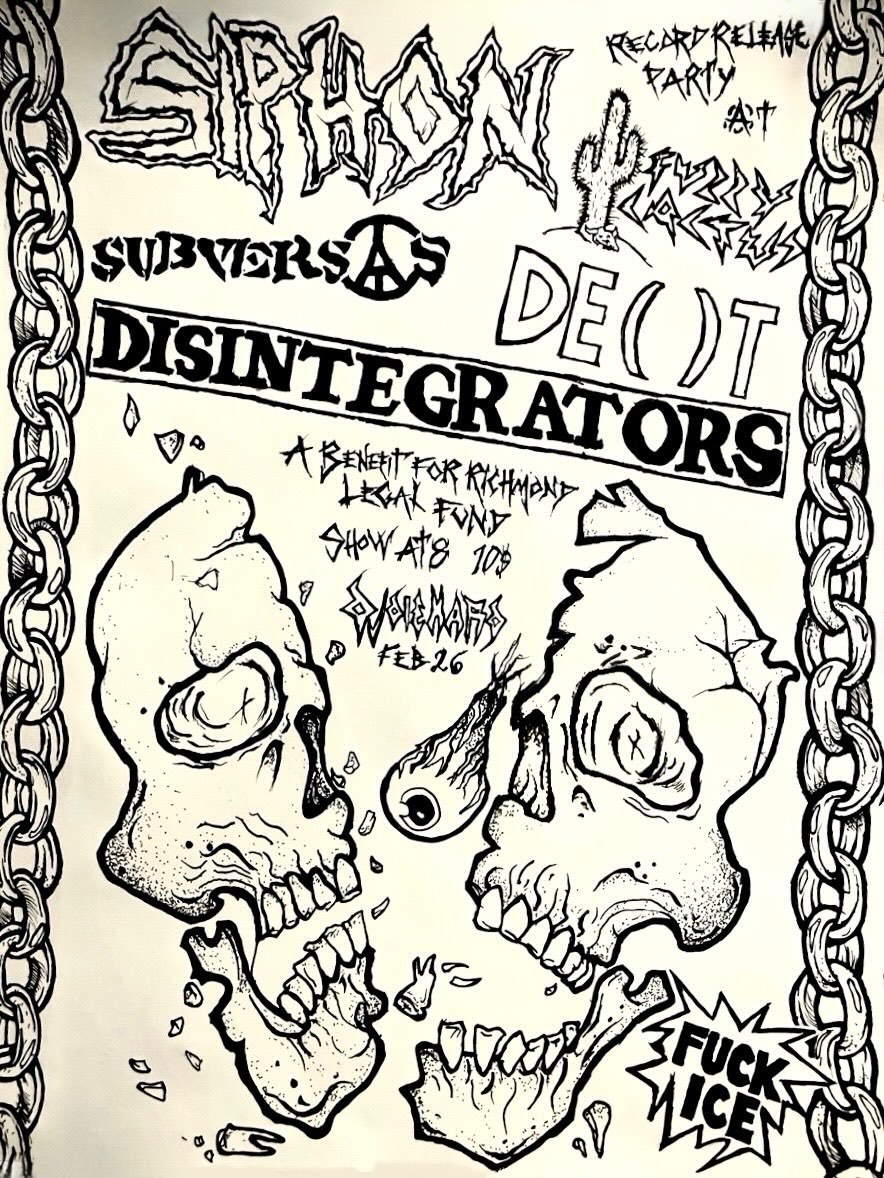 SIPHON
RECORD RELEASE
PARTY
AT
FUZZY
CACTUS
SUBVERSAS
DE( )T
DISINTEGRATORS
A BENEFIT FOR RICHMOND
LEGAL FUND
SHOW AT 8 10$
FEB 26
FUCK
ICE